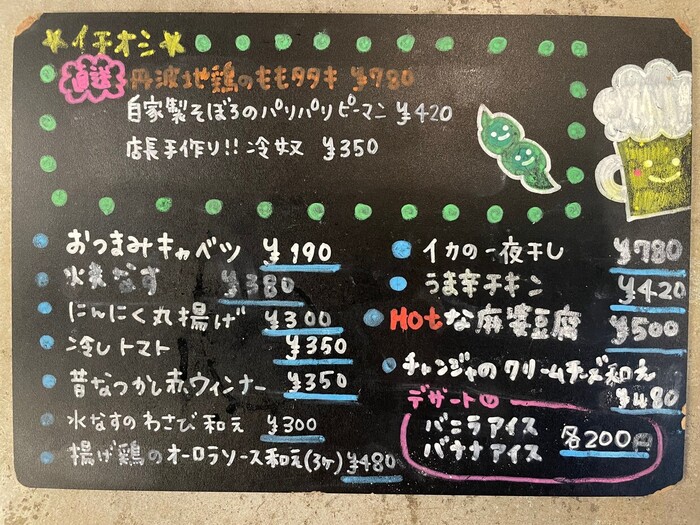 ☆イチオシ☆
直送 丹波地鶏のももタタキ ¥780
自家製そぼろのパリパリピーマン ¥420
店長手作り!! 冷奴 ¥350
おつまみキャベツ ¥190
焼きなす ¥380
にんにく丸揚げ ¥300
冷しトマト ¥350
昔なつかし赤ウィンナー ¥350
水なすのわさび和え ¥300
揚げ鶏のオーロラソース和え(3ヶ) ¥480
イカの一夜干し ¥780
うま辛チキン ¥420
Hotな麻婆豆腐 ¥500
チャンジャのクリームチーズ和え ¥480
デザート
バニラアイス
バナナアイス
各200円